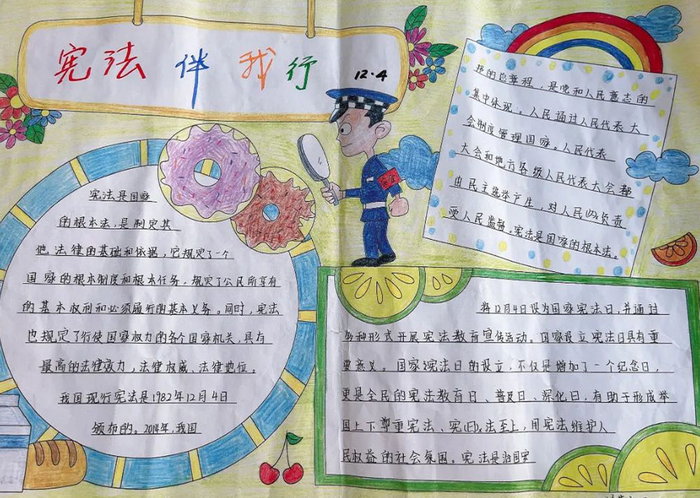 宪法伴我行
12·4
宪法是国家
的根本法,是制定其
他法律的基础和依据,它规定了一个
国家的根本制度和根本任务,规定了公民所享有
的基本权利和必须履行的基本义务。同时,宪法
也规定了行使国家权力的各个国家机关,具有
最高的法律效力、法律权威、法律地位。
我国现行宪法是1982年12月4日
颁布的。2018年,我国
的总章程,是党和人民意志的
集中体现。人民通过人民代表大
会制度管理国家。人民代表
大会和地方各级人民代表大会都
由民主选举产生,对人民(以)负责
受人民监督。宪法是国家的根本法。
将12月4日设为国家宪法日,并通过
多种形式开展宪法教育宣传活动。国家设立宪法日具有重
要意义。国家宪法日的设立,不仅是增加了一个纪念日,
更是全民的宪法教育日、普及日、深化日,有助于形成举
国上下尊重宪法、宪(日)法至上,用宪法维护人
民权益的社会氛围。宪法是治国安